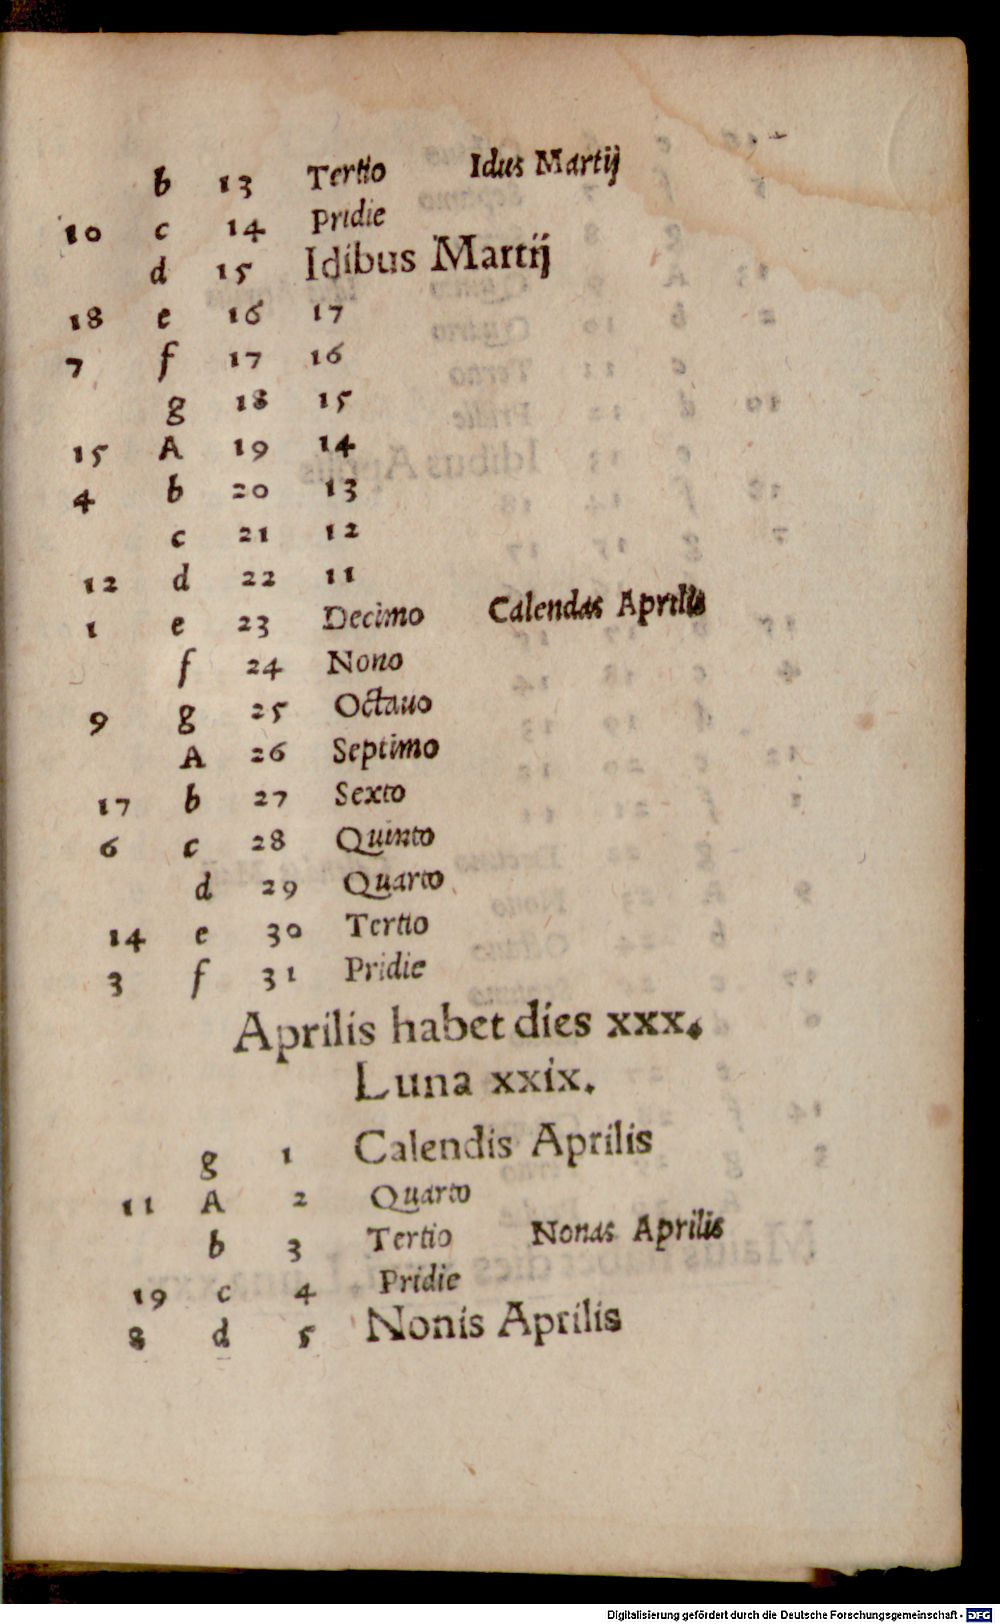 b 13 Tertio Idus Martij
10 c 14 Pridie
d 15 Idibus Martij
18 e 16 17
7 f 17 16
g 18 15
15 A 19 14
4 b 20 13
c 21 12
12 d 22 11
1 e 23 Decimo Calendas Aprilis
f 24 Nono
9 g 25 Octauo
A 26 Septimo
17 b 27 Sexto
6 c 28 Quinto
d 29 Quarto
14 e 30 Tertio
3 f 31 Pridie
Aprilis habet dies xxx.
Luna xxix.
g 1 Calendis Aprilis
11 A 2 Quarto
b 3 Tertio Nonas Aprilis
19 c 4 Pridie
8 d 5 Nonis Aprilis
Digitalisierung gefördert durch die Deutsche Forschungsgemeinschaft - DFG